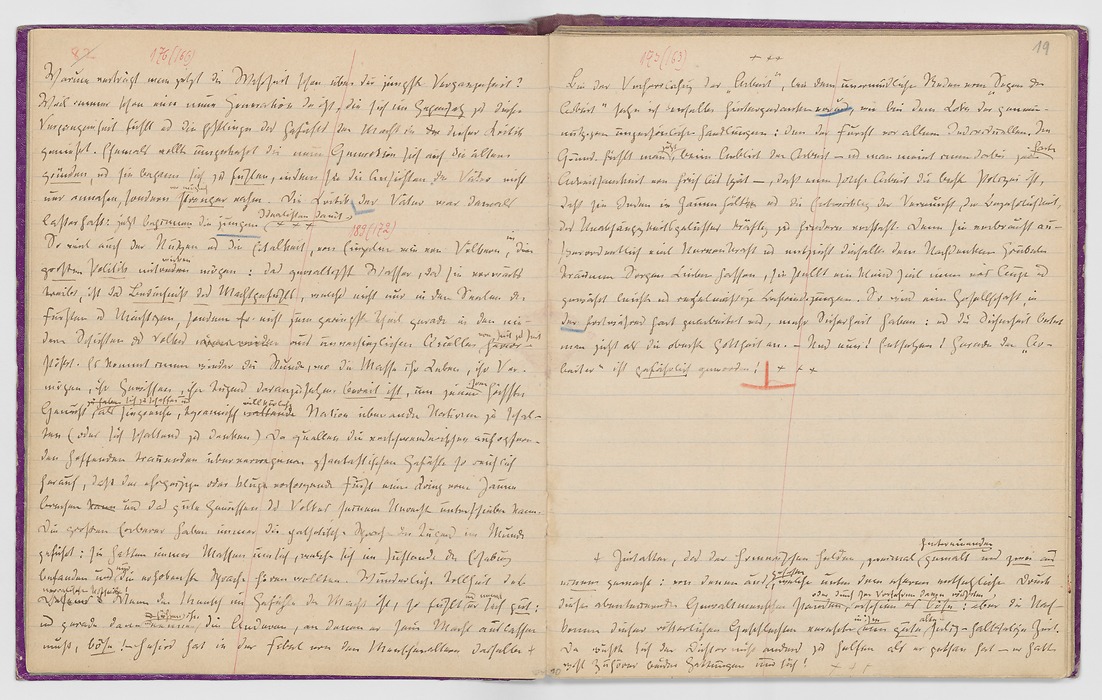 97 176 (166)
Warum verträgt man jetzt die Wahrheit schon über die jüngste Vergangenheit?
Weil immer schon eine neue Generation da ist, die sich im Gegensatz zu dieser
Vergangenheit fühlt und die Erstlinge des Gefühls der Macht in dieser Kritik
genießt. Ehemals wollte umgekehrt die neue Generation sich auf die ältere
gründen, und sie begann sich zu fühlen, indem sie die Ansichten der Väter nicht
nur annahm, sondern womöglich strenger nahm. Die Kritik der Väter war damals
lasterhaft: jetzt beginnen die jungen Idealisten damit. + + +
189 (172)
So viel auch der Nutzen und die Eitelkeit, von Einzelnen wie von Völkern, in der
großen Politik mitwirken mögen: das gewaltigste Wasser, das sie vorwärts
treibt, ist das Bedürfniß des Machtgefühls, welches nicht nur in den Seelen der
Fürsten und Mächtigen, sondern nicht zum geringsten Theil gerade in den nie-
deren Schichten des Volkes aus unversieglichen Quellen von Zeit zu Zeit hervor-
stößt. Es kommt immer wieder die Stunde, wo die Masse ihr Leben, ihr Ver-
mögen, ihr Gewissen, ihre Tugend daranzusetzen bereit ist, um jenen höchsten
Genuß sich zu schaffen und als siegreiche, tyrannisch willkürliche Nation über andere Nationen zu schal-
ten (oder sich schaltend zu denken) Da quellen die verschwenderischen aufopfern-
den hoffenden trauenden überverwegenen phantastischen Gefühle so reichlich
herauf, daß der ehrgeizige oder klug vorsorgende Fürst einen Krieg vom Zaune
brechen und das gute Gewissen des Volkes seinem Unrecht unterschieben kann.
Die großen Eroberer haben immer die pathetische Sprache der Tugend im Munde
geführt: sie hatten immer Massen um sich, welche sich im Zustande der Erhebung
befanden und nur die erhobenste Sprache hören wollten. Wunderliche Tollheit der
moralischen Urtheile! Wenn der Mensch im Gefühle der Macht ist, so fühlt und nennt er sich gut:
und gerade dann fühlen und nennen ihn die Anderen, an denen er seine Macht auslassen
muß, böse! – Hesiod hat in der Fabel von den Menschenaltern dasselbe +
173 (163) + ++ 19
Bei der Verherrlichung der „Arbeit", bei dem unermüdlichen Reden vom „Segen der
Arbeit" sehe ich denselben Hintergedanken, wie bei dem Lobe der gemein-
nützigen unpersönlichen Handlungen: den der Furcht vor allem Individuellen. Im
Grunde fühlt man jetzt, beim Anblick der Arbeit – und man meint immer dabei jene harte
Arbeitsamkeit von früh bis spät –, daß eine solche Arbeit die beste Polizei ist,
daß sie Jeden im Zaume hält und die Entwicklung der Vernunft, der Begehrlichkeit,
des Unabhängigkeitsgelüstes kräftig zu hindern versteht. Denn sie verbraucht au-
ßerordentlich viel Nervenkraft und entzieht dieselbe dem Nachdenken Grübeln
Träumen Sorgen Lieben Hassen, sie stellt ein kleines Ziel immer ins Auge und
gewährt leichte und regelmäßige Befriedigungen. So wird eine Gesellschaft, in
der fortwährend hart gearbeitet wird, mehr Sicherheit haben: und die Sicherheit betet
man jetzt als die oberste Gottheit an. – Und nun! Entsetzen! Gerade der „Ar-
beiter" ist gefährlich geworden! + + +
+ Zeitalter, das der homerischen Helden, zweimal hintereinander gemalt und zwei aus
einem gemacht: von denen aus gesehen welche unter dem ehernen entsetzlichen Druck
dieser abenteuernden Gewaltmenschen standen, oder durch ihre Vorfahren davon wußten, erschien es böse: aber die Nach-
kommen dieser ritterlichen Geschlechter verehrten in ihm eine gute alte, selig-halbselige Zeit.
Da wußte sich der Dichter nicht anders zu helfen als er gethan hat – er hatte
wohl Zuhörer beider Gattungen um sich! + + +